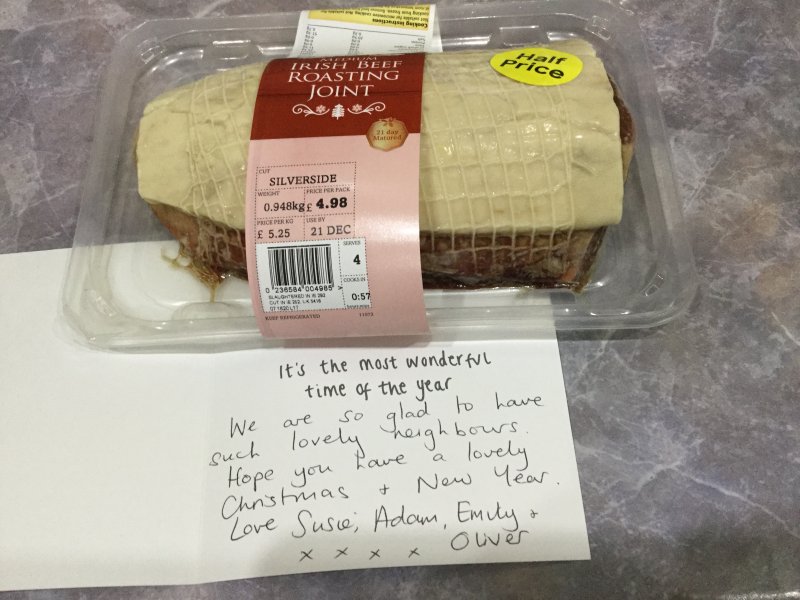 Cooking Instructions
Half
Price
MEDIUM
IRISH BEEF
ROASTING
JOINT
21 day
Matured
CUT
SILVERSIDE
WEIGHT
PRICE PER PACK
0.948kg £ 4.98
PRICE PER KG
USE BY
£ 5.25
21 DEC
SERVES
4
COOKS IN
0:57
0 236584 004985 >
SLAUGHTERED IN IE 292
KEEP REFRIGERATED
11073
It's the most wonderful
time of the year
We are so glad to have
such lovely neighbours.
Hope you have a lovely
Christmas + New Year.
Love Susie, Adam, Emily +
Oliver
x x x x